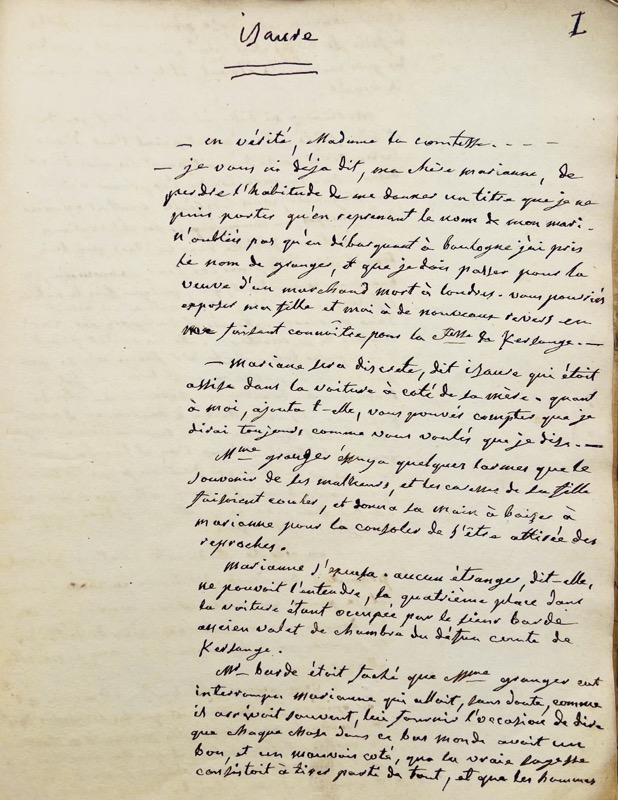 isaure
I
— en vérité, Madame la comtesse. - - - -
— je vous ai déja dit, ma chère marianne, de
perdre l'habitude de me donner un titre que je ne
puis porter qu'en reprenant le nom de mon mari -
n'oubliés pas qu'en débarquant à boulogne j'ai pris
le nom de granger, et que je dois passer pour la
veuve d'un marchand mort à londres. vous pourriés
exposer ma fille et moi à de nouveaux revers en
me faisant connoître pour la Ctesse de Kersange. —
— mariane sera discrete, dit isaure qui étoit
assise dans la voiture à coté de sa mère. quant
à moi, ajouta t-elle, vous pouvés compter que je
dirai toujours comme vous voulés que je dise. —
Mme granger éssuya quelques larmes que le
souvenir de ses malheurs, et les caresses de sa fille
faisoient couler, et donna sa main à baiser à
marianne pour la consoler de s'être attirée des
reproches.
marianne s'excusa. aucun étranger, dit-elle,
ne pouvoit l'entendre, la quatrième place dans
la voiture étant occupée par le sieur barde
ancien valet de chambre du défun comte de
Kersange.
Mr barde étoit faché que Mme granger eut
interrompu marianne qui alloit, sans doute, comme
il arrivoit souvent, lui fournir l'occasion de dire
que chaque chose dans ce bas monde avoit un
bon, et un mauvais coté, que la vraie sagesse
consistoit à tirer parti de tout, et que les hommes